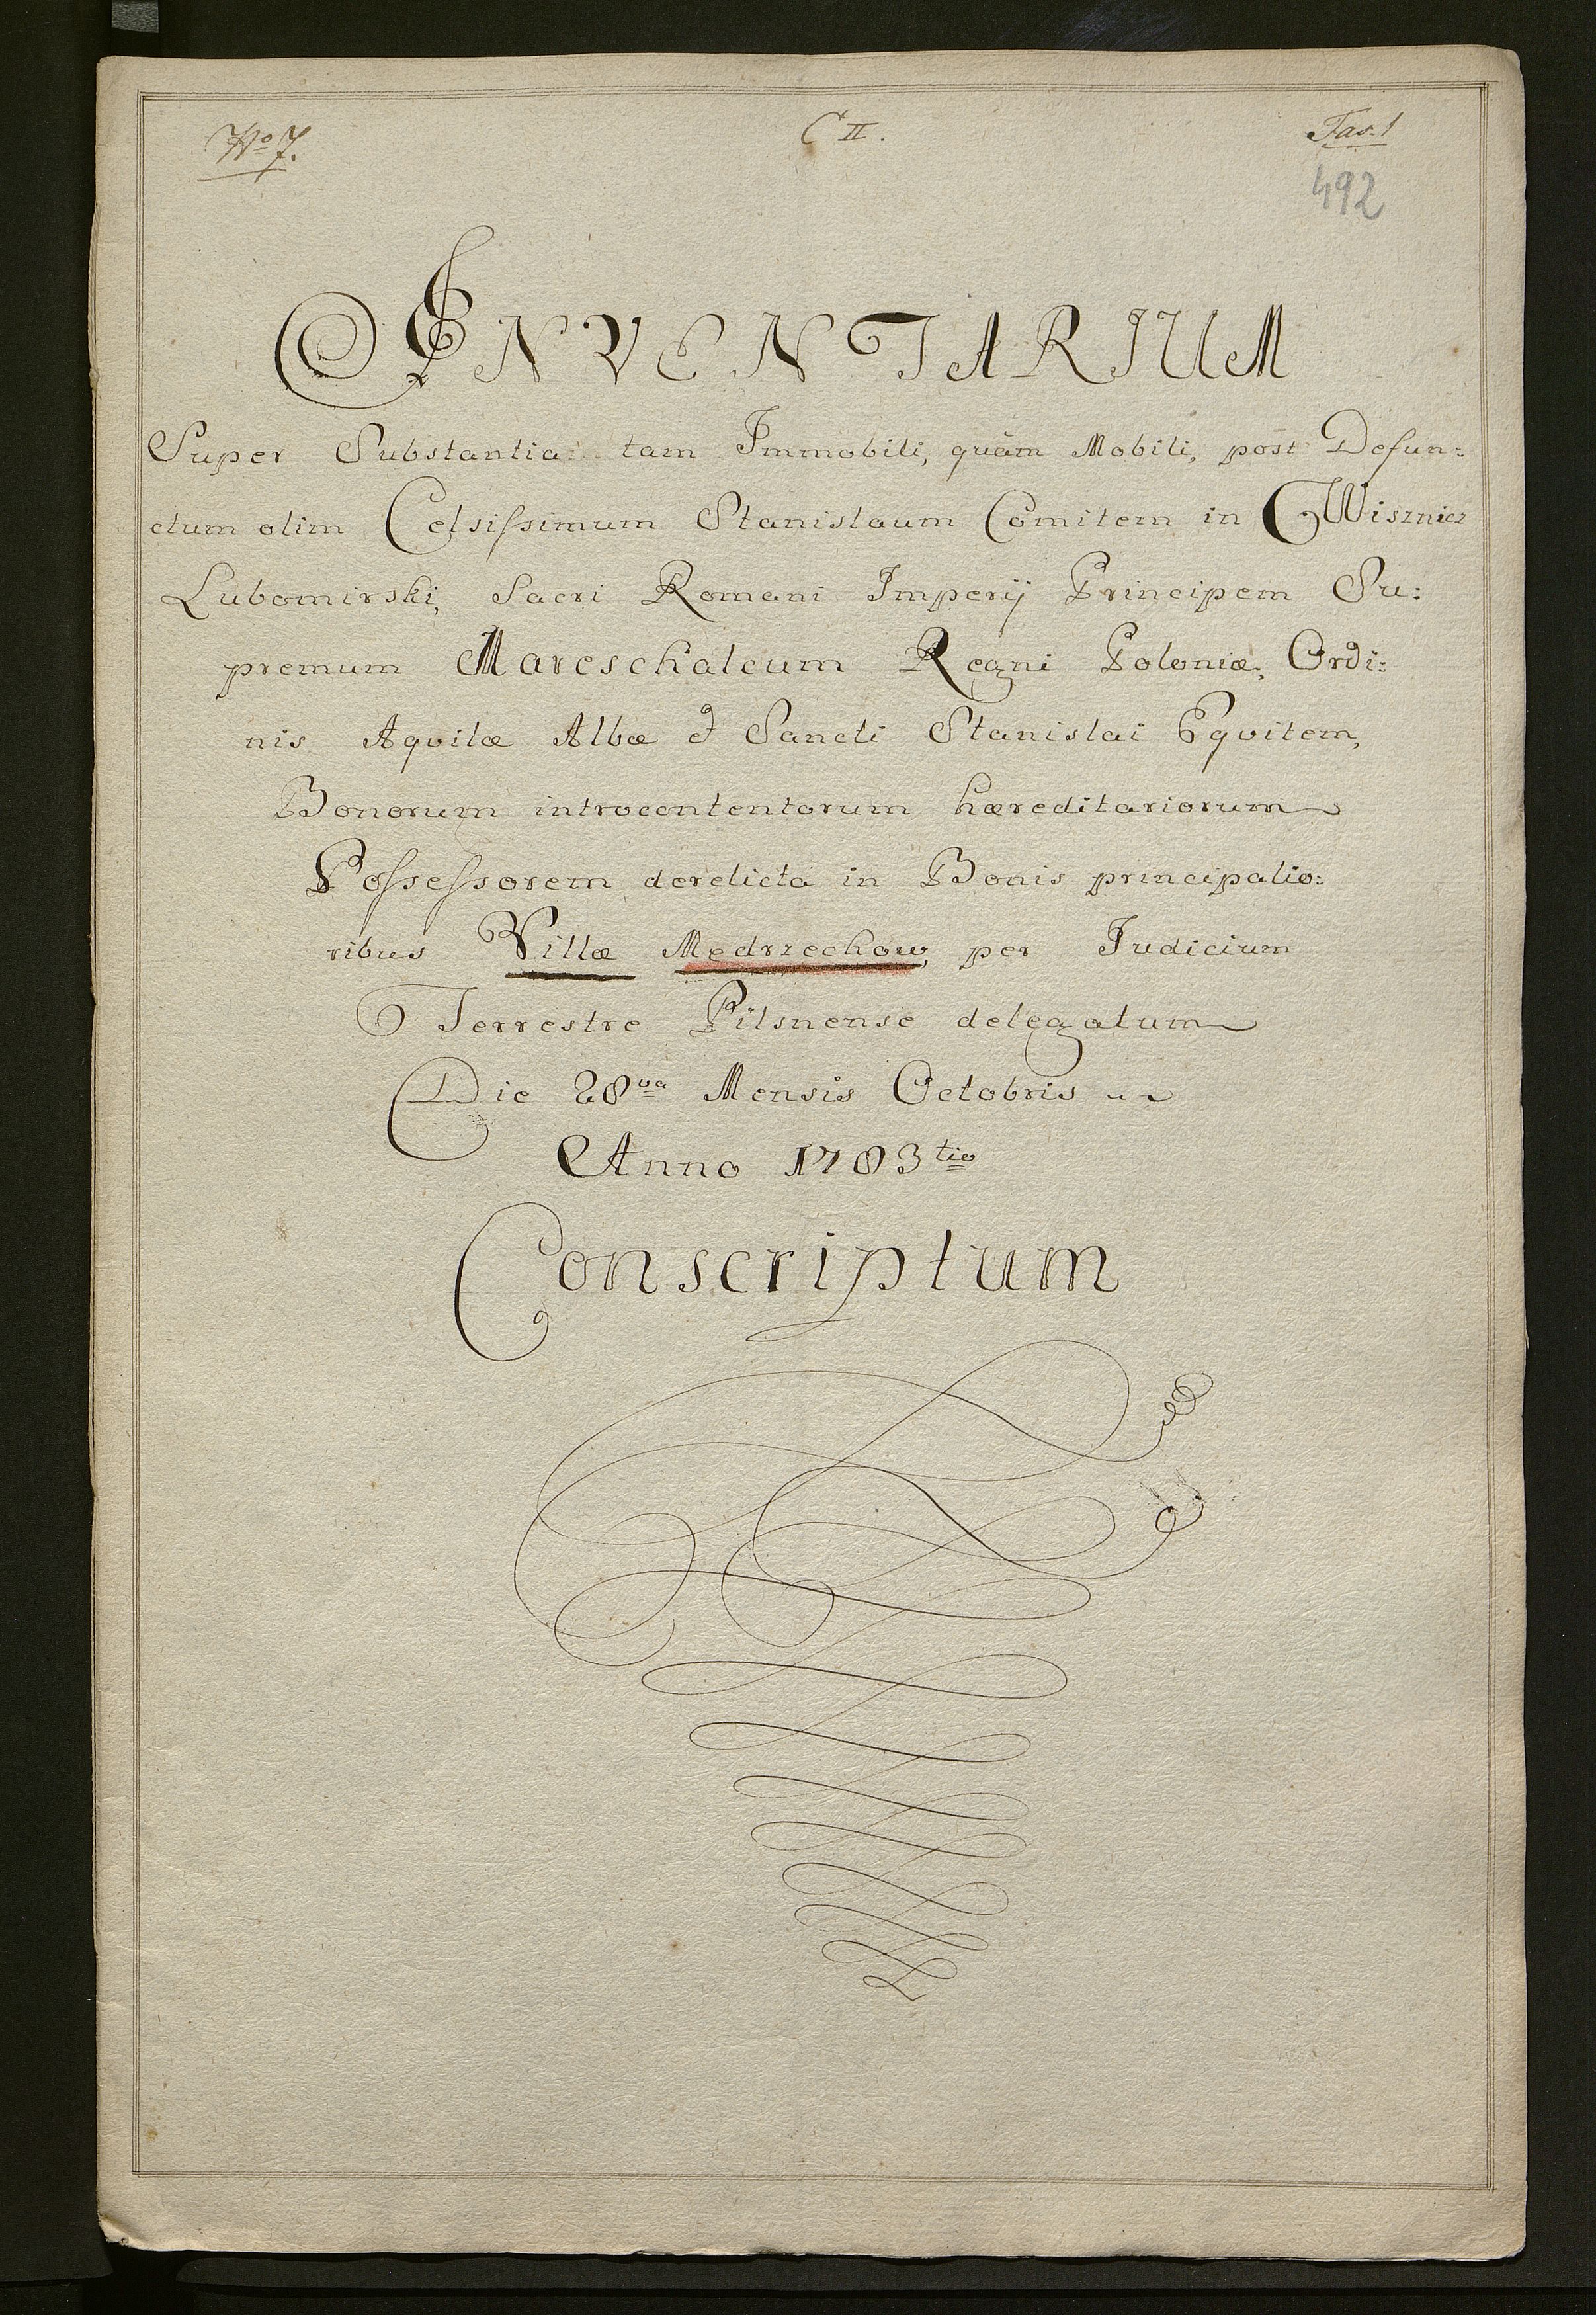 No 7.
C II.
Fas. 1
492
INVENTARIUM
Super Substantia tam Immobili, quàm Mobili, post Defun:
ctum olim Celsissimum Stanislaum Comitem in Wisznicz
Lubomirski, Sacri Romani Imperij Principem Su:
premum Mareschalcum Regni Poloniæ, Ordi:
nis Aqvilæ Albæ et Sancti Stanislai Eqvitem,
Bonorum introcontentorum hæreditariorum
Possessorem derelicta in Bonis principalio:
ribus Villæ Mędrzechow, per Judicium
Terrestre Pilsnense delegatum
Die 28va Mensis Octobris
Anno 1783tio
Conscriptum